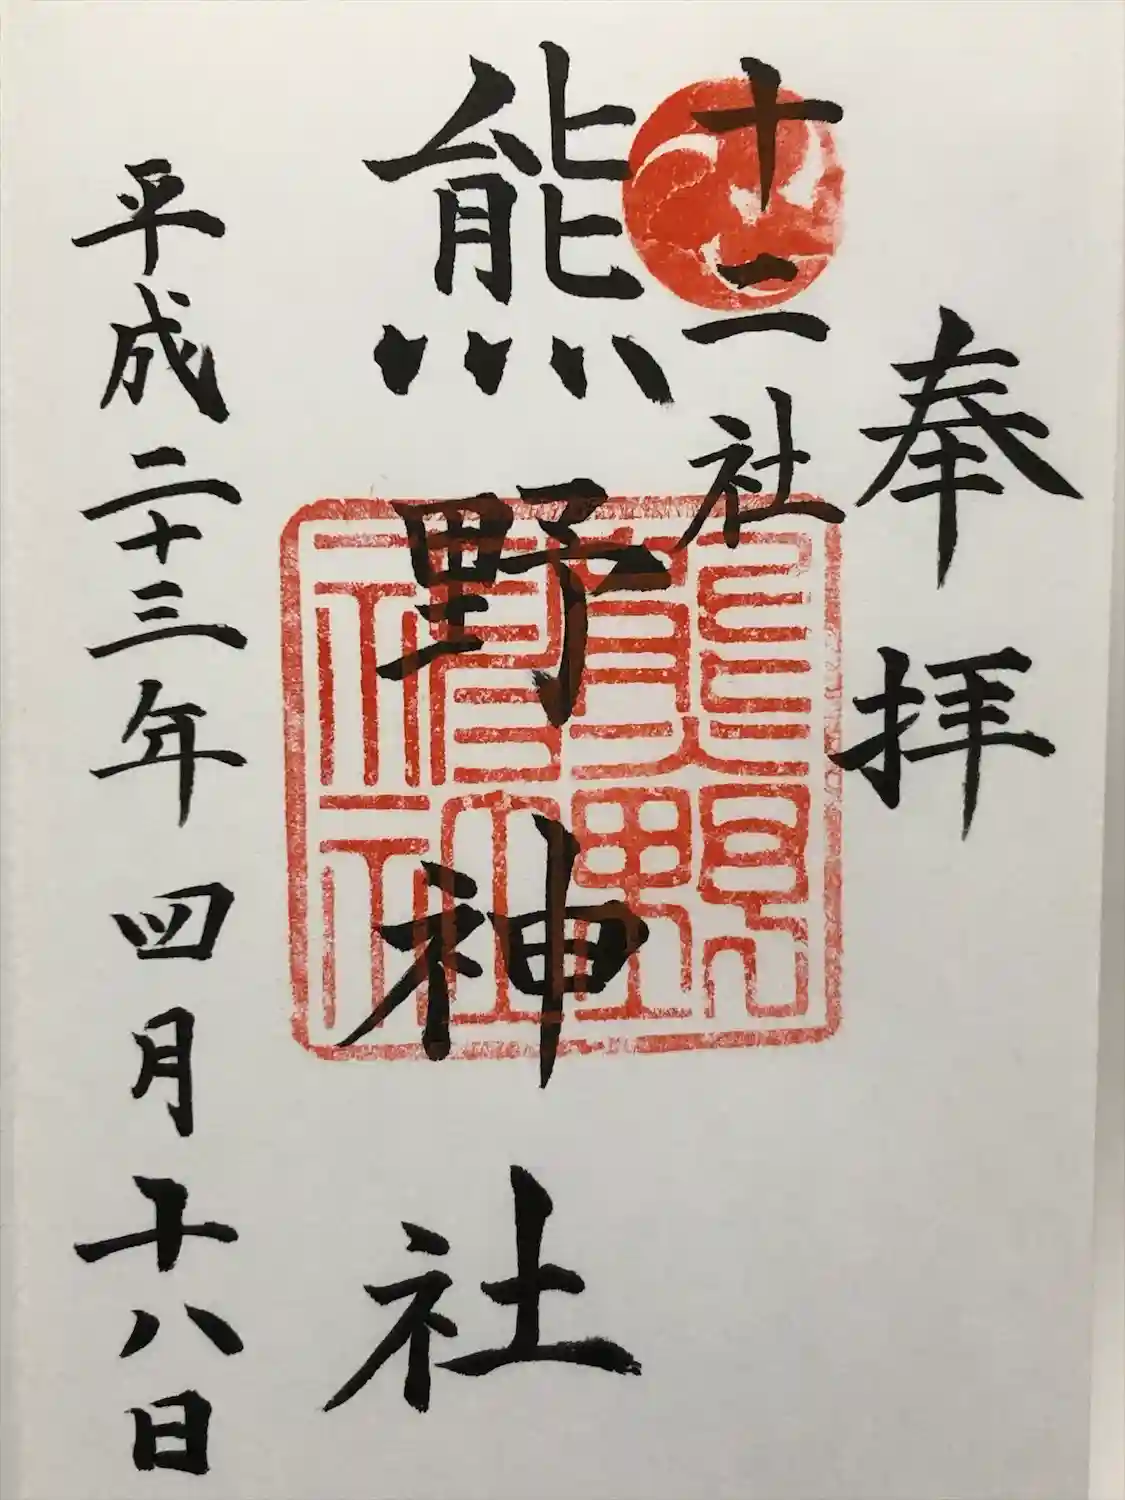 奉拝
十二社
熊野神社
平成二十三年四月十八日